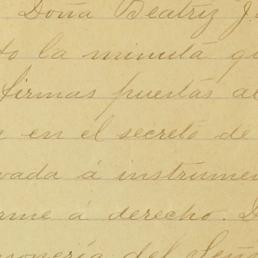 Doña Beatriz J.
to la minuta qu
firmas puestas al
en el secreto de
vada á instrumen
rme á derecho. D
sonería del Seño